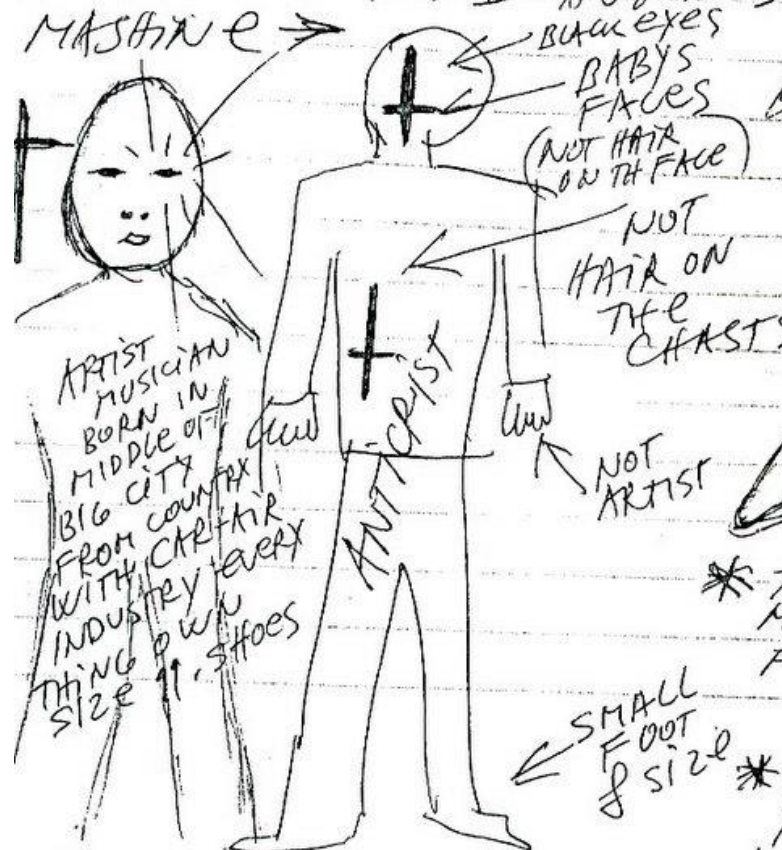 MASHINE
BLACK EXES
BABYS
FACES
(NOT HAIR
ON TH FACE)
NOT
HAIR ON
THE
CHAST
ARTIST
MUSICIAN
BORN IN
MIDDLE OF
BIG CITY
FROM COUNTRX
WITH CAR-AIR
INDUSTRY-EVERX
THING OWN
SIZE 9. SHOES
ANTI-CRYST
NOT
ARTIST
SMALL
FOOT
8 SIZE